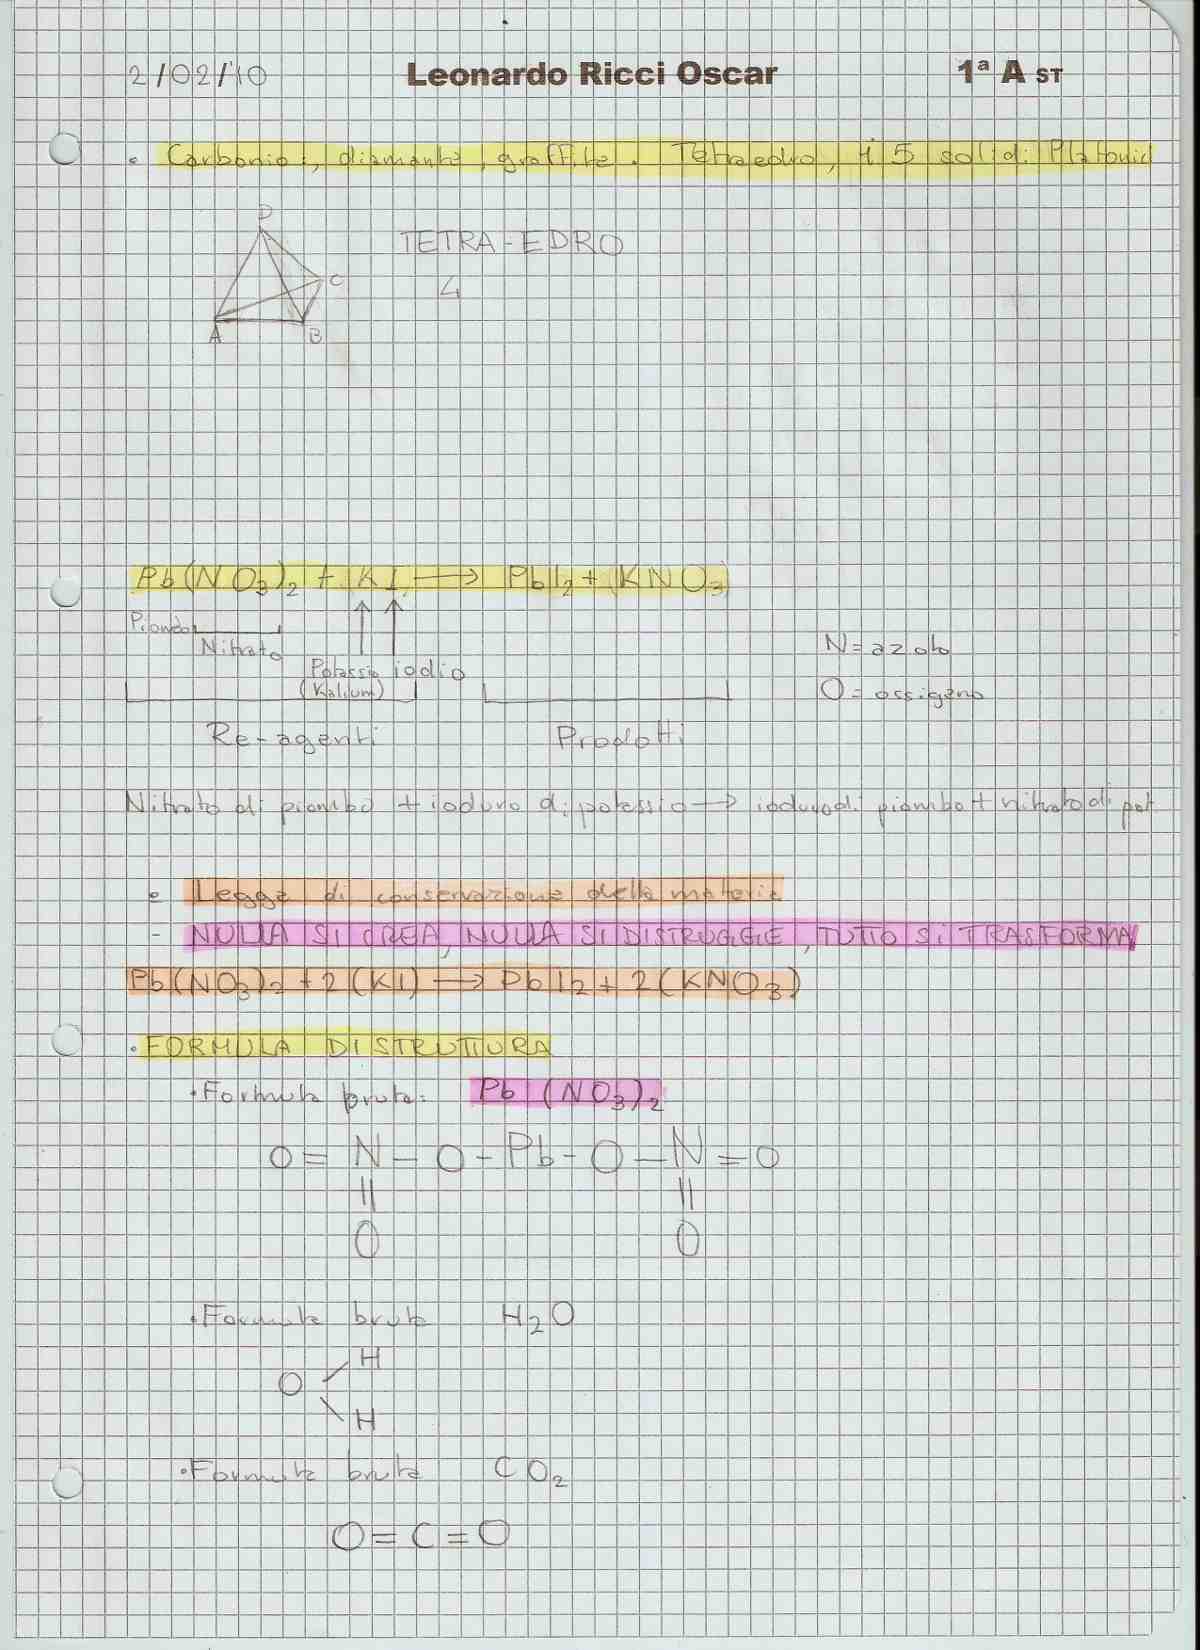 2/02/10 Leonardo Ricci Oscar 1ª A ST
• Carbonio:, diamante, graffite. Tetraedro, i 5 solidi Platonici
D
TETRA-EDRO
C
4
A B
Pb(NO3)2 + (KI) → PbI2 + (KNO3)
Piombo
Nitrato
N = azoto
Potassio iodio
(Kalium)
O = ossigeno
Re-agenti Prodotti
Nitrato di piombo + ioduro di potassio → ioduro di piombo + nitrato di pot
• Legge di conservazione della materia
- NULLA SI CREA, NULLA SI DISTRUGGE, TUTTO Si TRASFORMA
Pb(NO3)2 + 2(KI) → PbI2 + 2(KNO3)
• FORMULA DI STRUTTURA
• Formula bruta: Pb (NO3)2
O = N - O - Pb - O - N = O
|| ||
O O
• Formula bruta H2O
H
O
H
• Formula bruta CO2
O = C = O